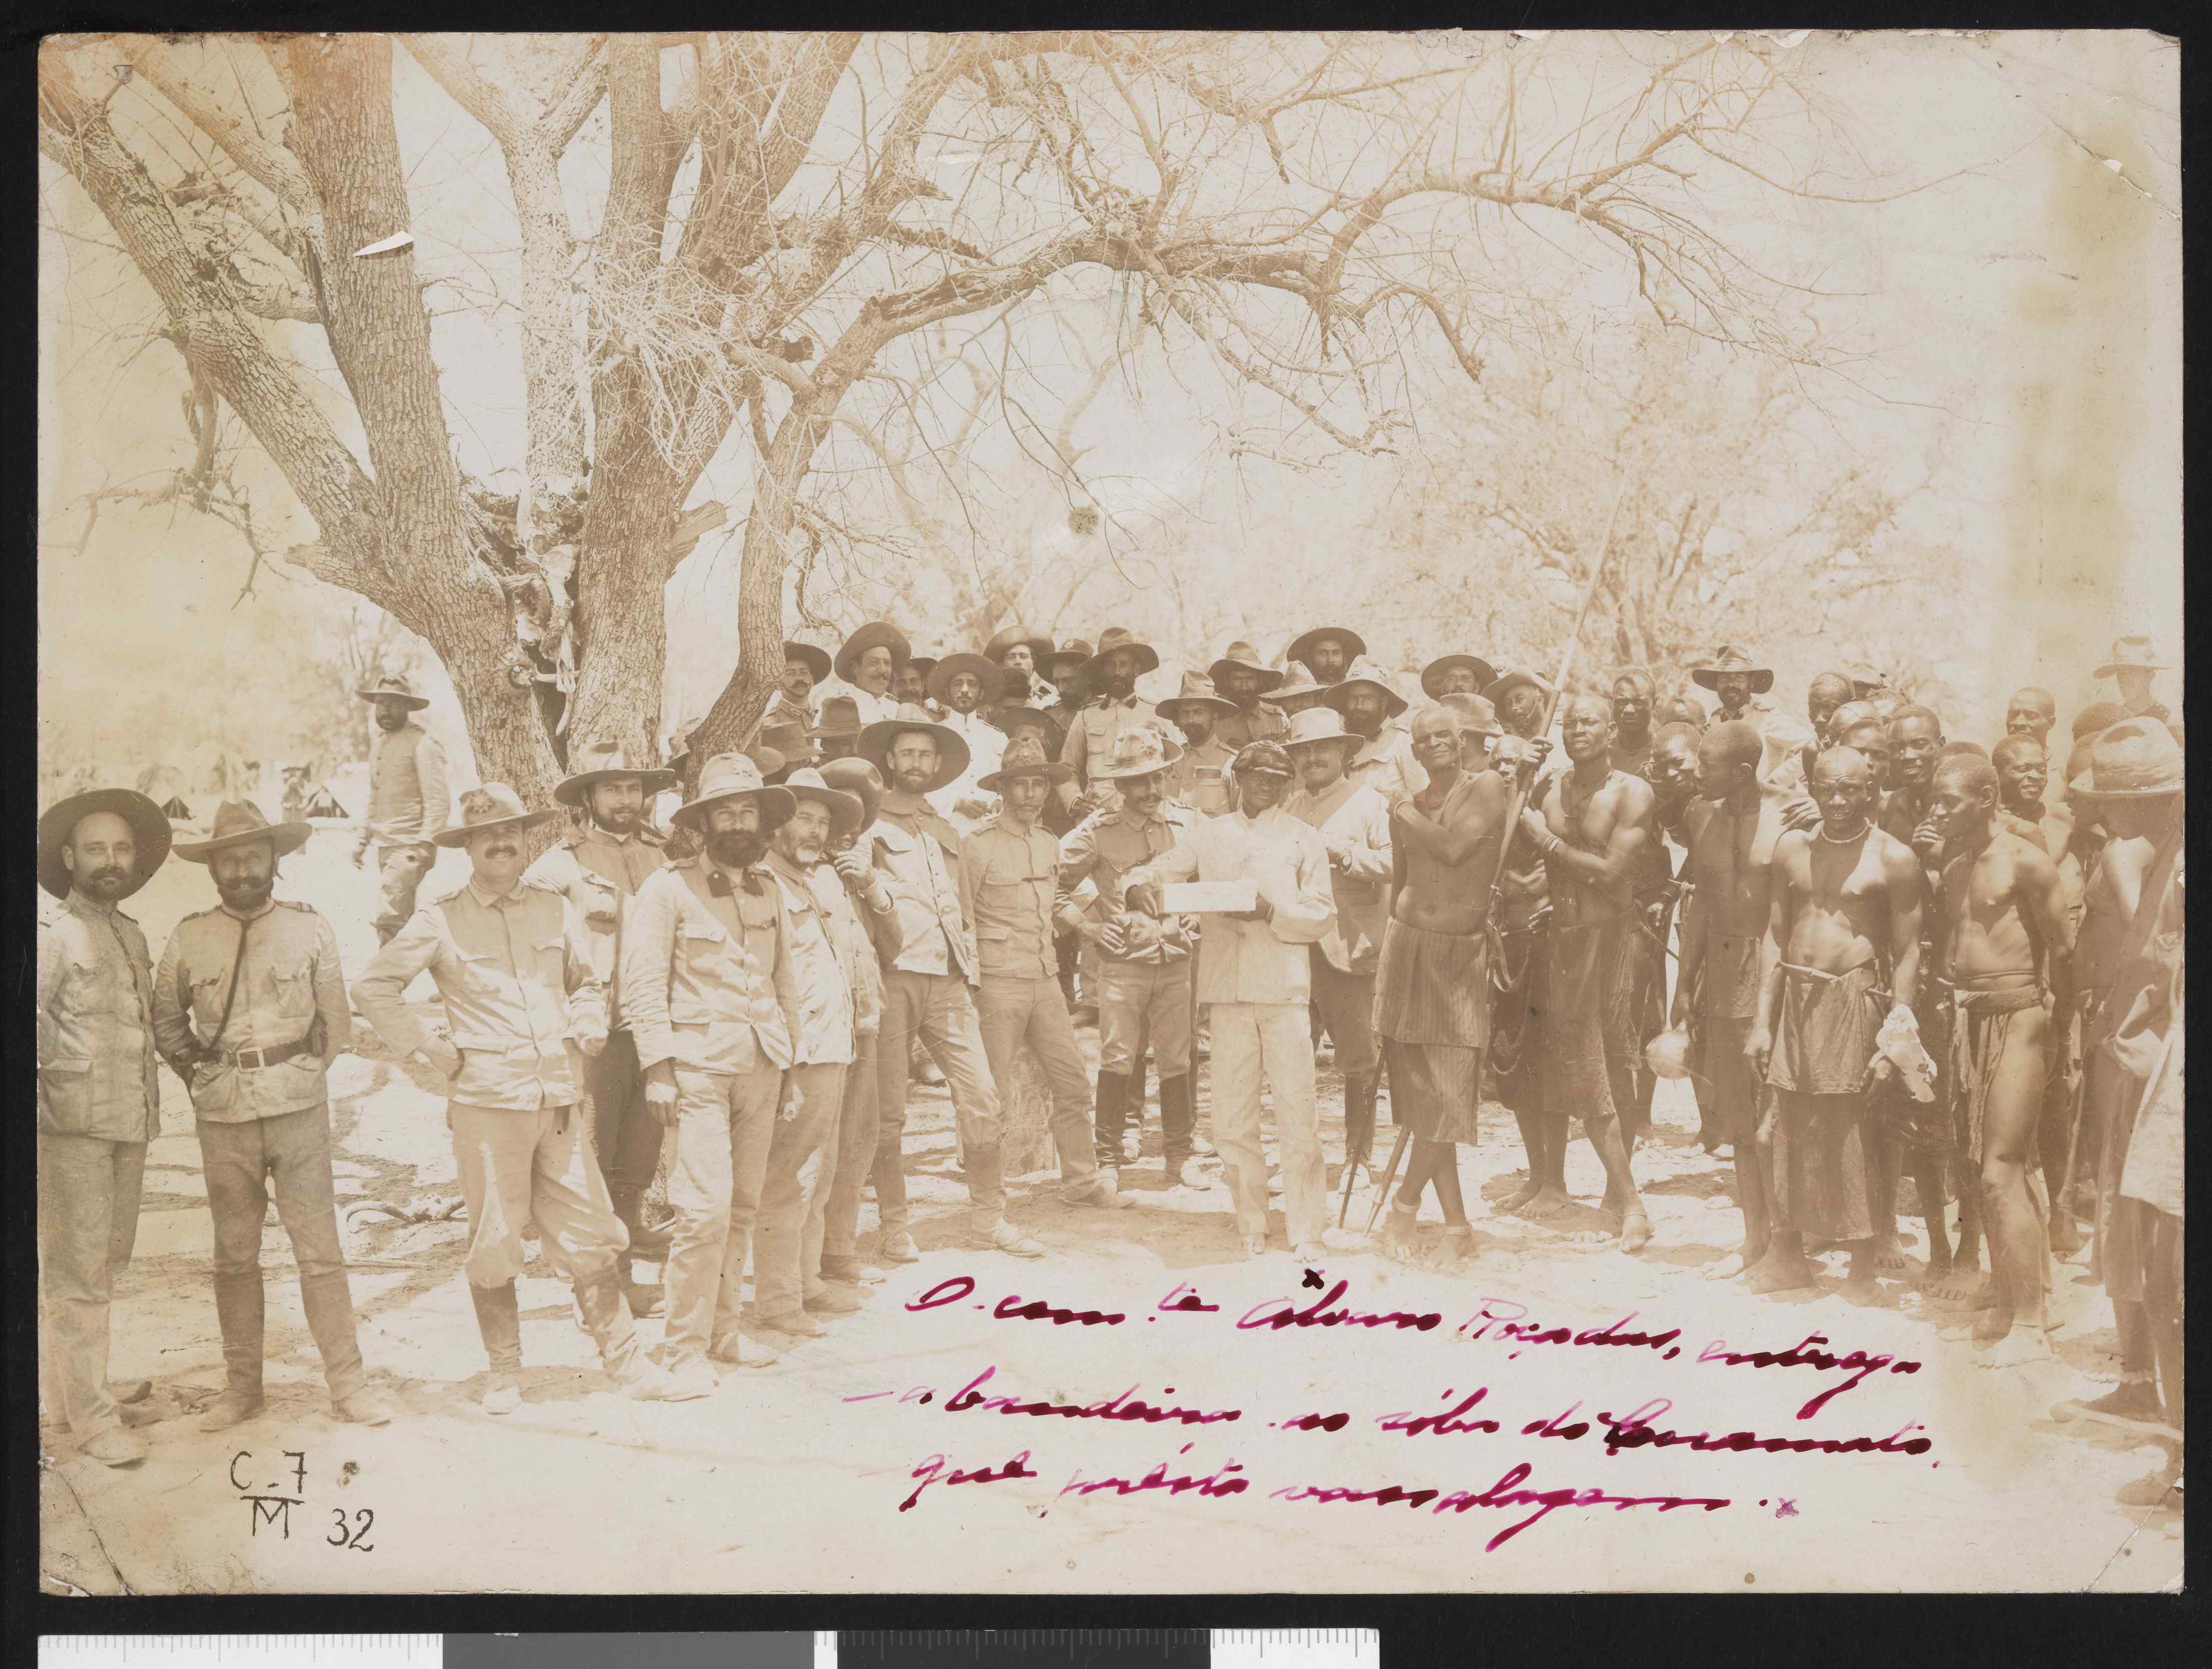 O com.te Alvaro Roçadas, entrega
a bandeira ao sóba do Cuamato,
que présta vassalagem.
C-7
M 32